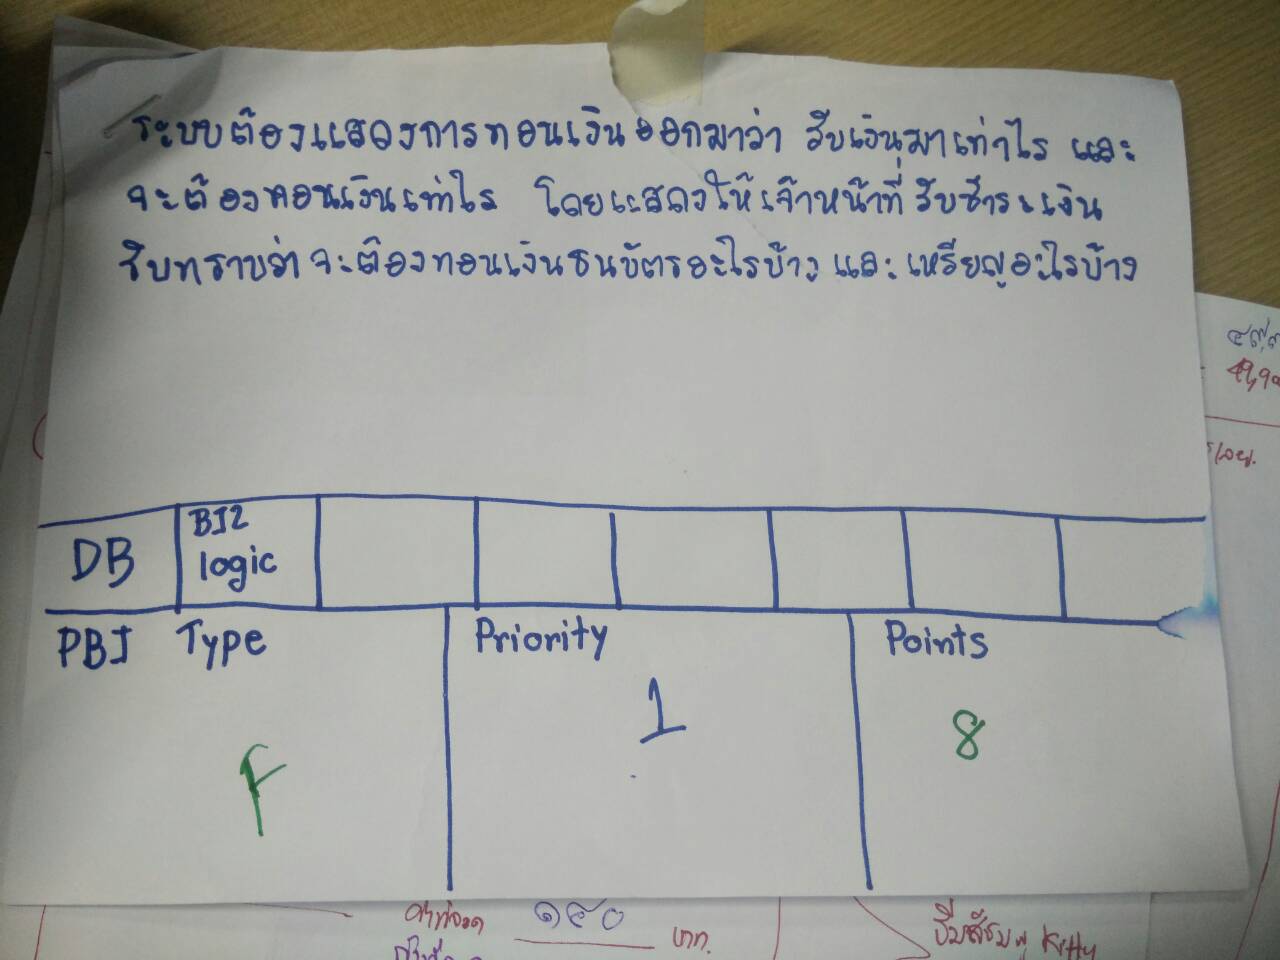 ระบบต้องแสดงการทอนเงินออกมาว่า รับเงินมาเท่าไร และ
จะต้องทอนเงินเท่าไร โดยแสดงให้เจ้าหน้าที่รับชำระเงิน
รับทราบว่าจะต้องทอนเงินธนบัตรอะไรบ้าง และ เหรียญอะไรบ้าง
49,90
DB
BIZ
logic
PBI Type
Priority
Points
F
1
8
๑๙๐
บาท.
Kitty